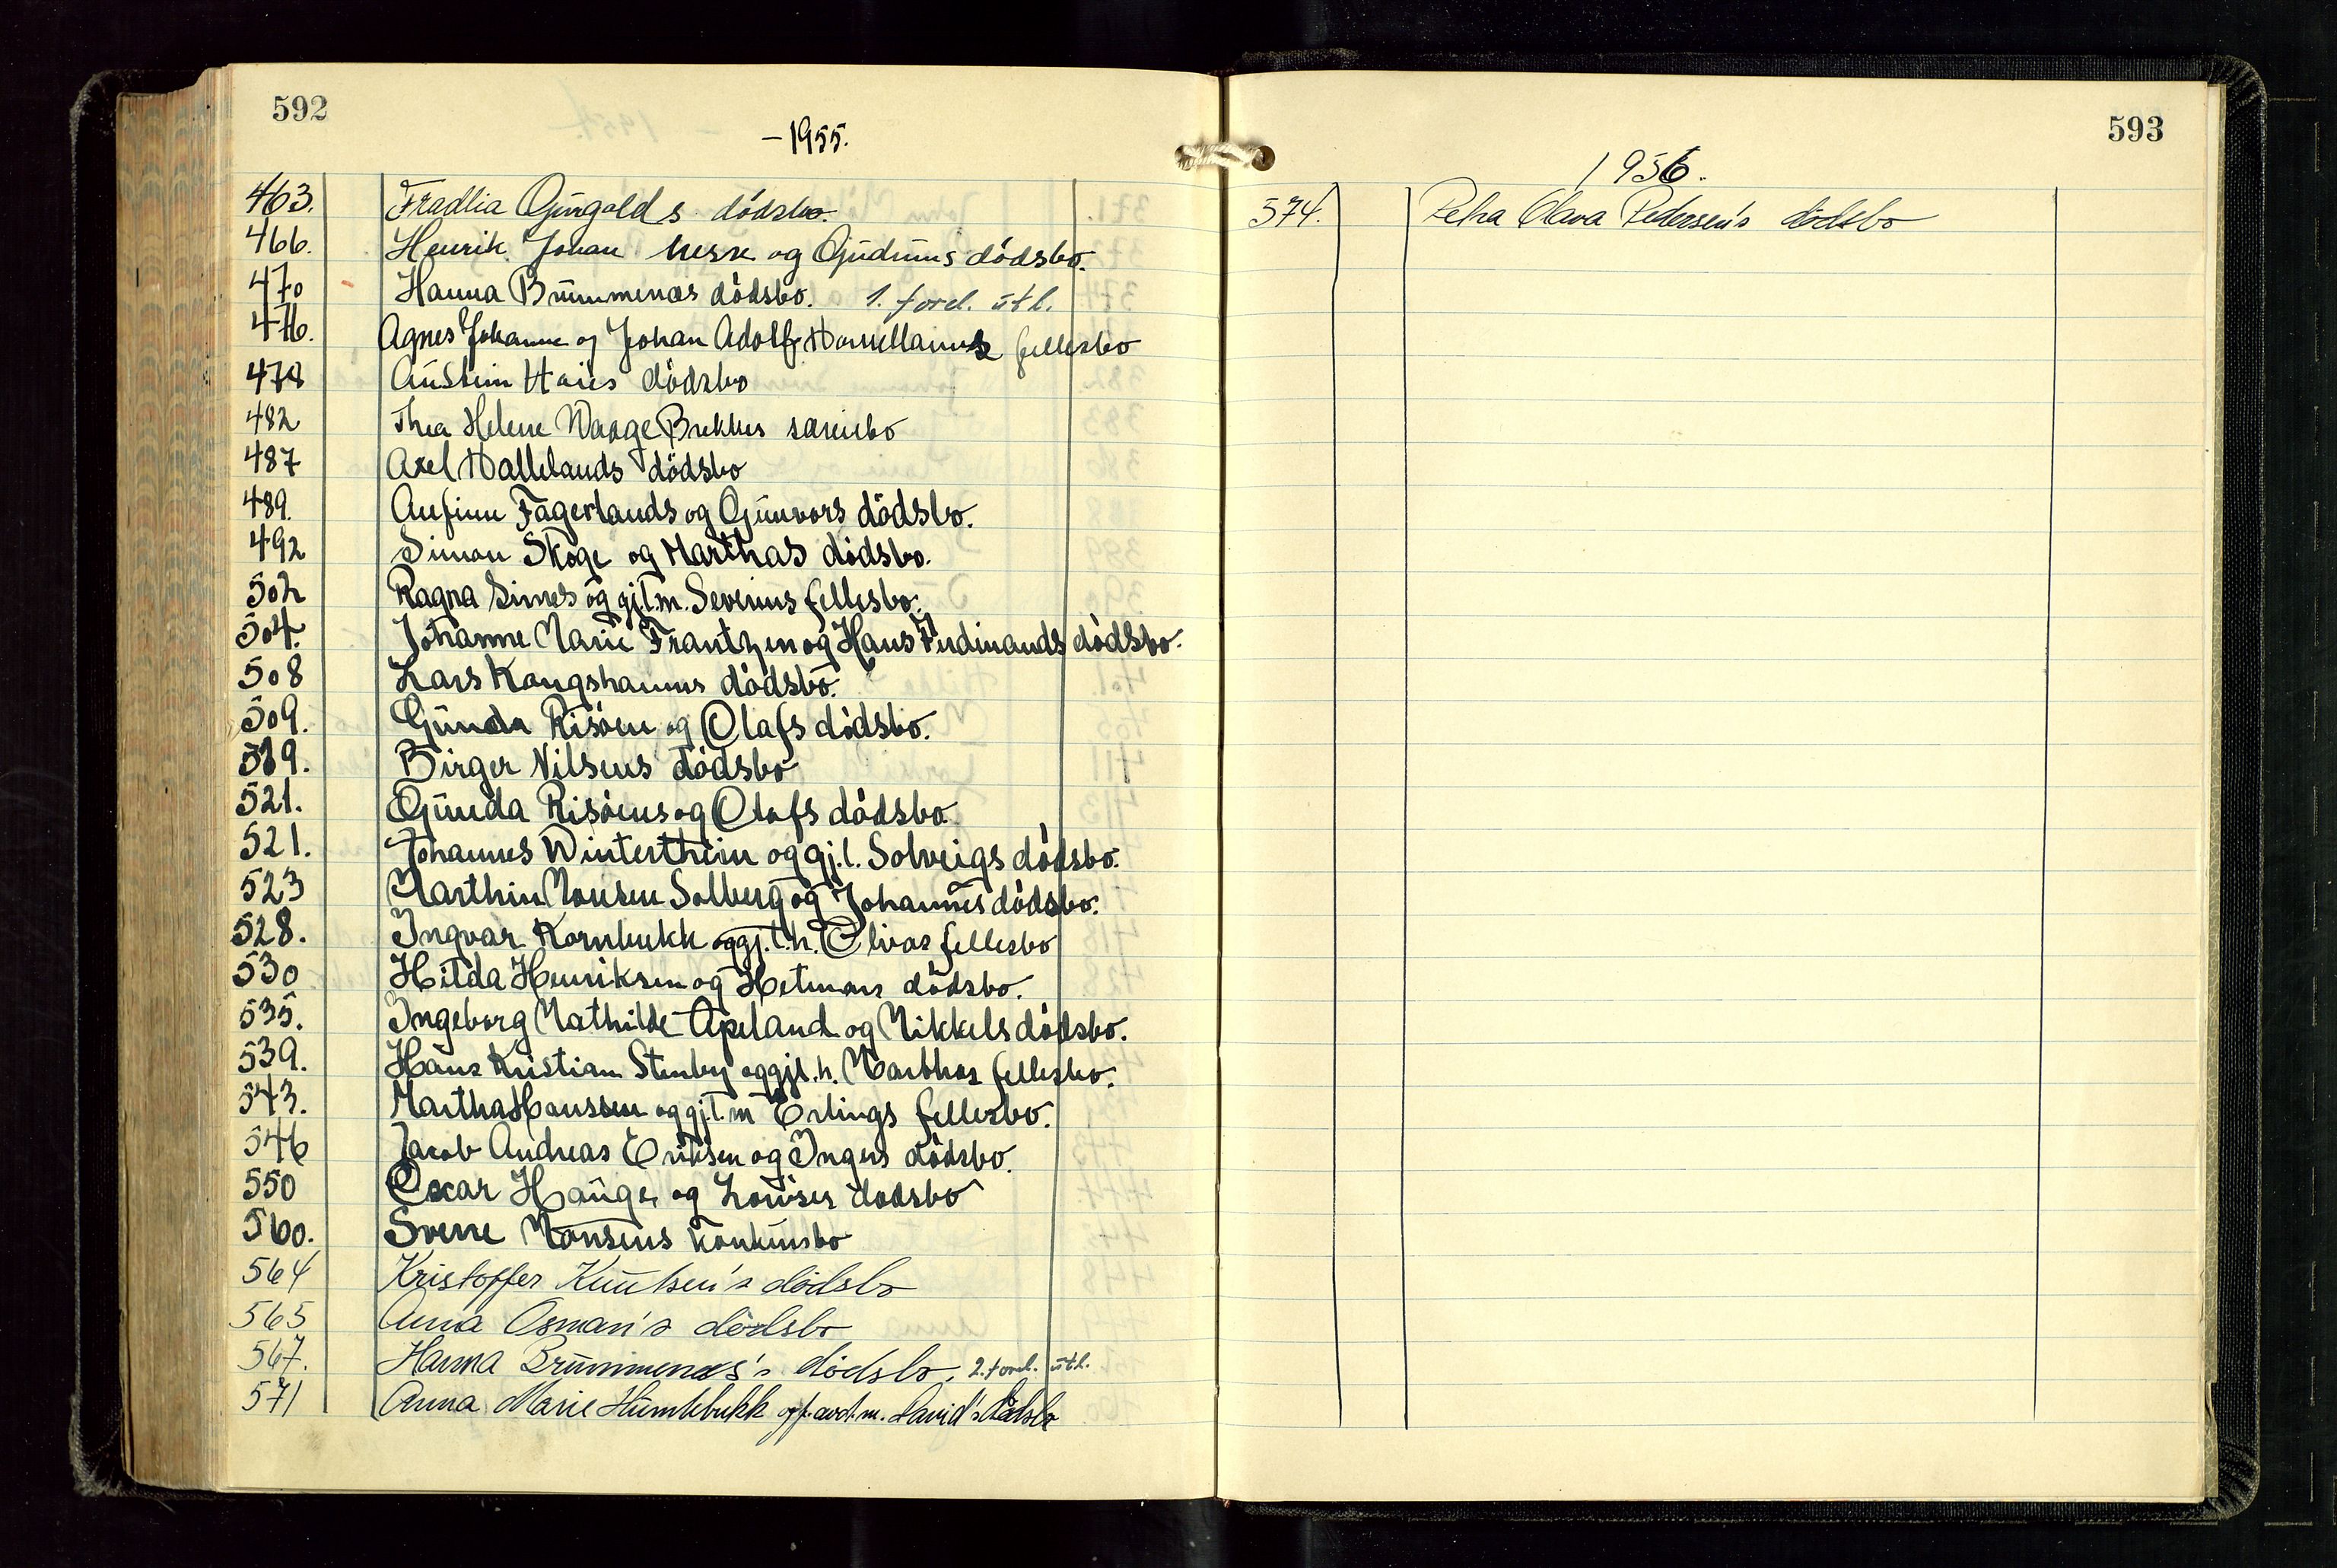 592
-1955.
463. Fradlia Gjurgolds dödsbo.
466. Henrik Johan Nesse og Gudruns dödsbo.
470 Hanna Brummenæs dödsbo. 1. ford. utl.
476. Agnes Johanne og Johan Adolf fellesbo
478 Austein dödsbo
482 Thea Helene Waage Brekkes særeiebo
487 Axel Hallelands dödsbo
489. Anfinn Fagerlands og Gunvors dödsbo.
492 Simon Skoge og Marthas dödsbo.
502 Ragna Simes og gjl.m. Severins fellesbo.
504. Johanne Marie Frantzen og Hans Ferdinands dödsbo.
508 Lars Kongshavns dödsbo.
509. Gunda Risöen og Olafs dödsbo.
519. Birger Nilsens dödsbo
521. Gunda Risöens og Olafs dödsbo.
521. Johannes Winterthun og gj.l. Solveigs dödsbo.
523 Marthin Monsen Solberg og Johannes dödsbo.
528. Ingvar Kornbrekk og gj.l.h. Olivas fellesbo
530 Hilda Henriksen og Hetmans dödsbo.
535. Ingeborg Mathilde Apeland og Mikkels dödsbo.
539. Hans Kristian Stenby og gjl.h. Marthas fellesbo.
543. Martha Hanssen og gjl.m Erlings fellesbo.
546 Jacob Andreas Eriksen og Ingers dödsbo.
550 Oscar Hauge og Louises dödsbo
560. Sverre Monsens konkursbo
564 Kristoffer Knutsen's dödsbo
565 Anna Osman's dödsbo
567. Hanna Brummenæs's dödsbo. 2. ford. utl.
571 Anna Marie m. David's dödsbo
593
1956.
574. Petra Olava Pedersen's dödsbo